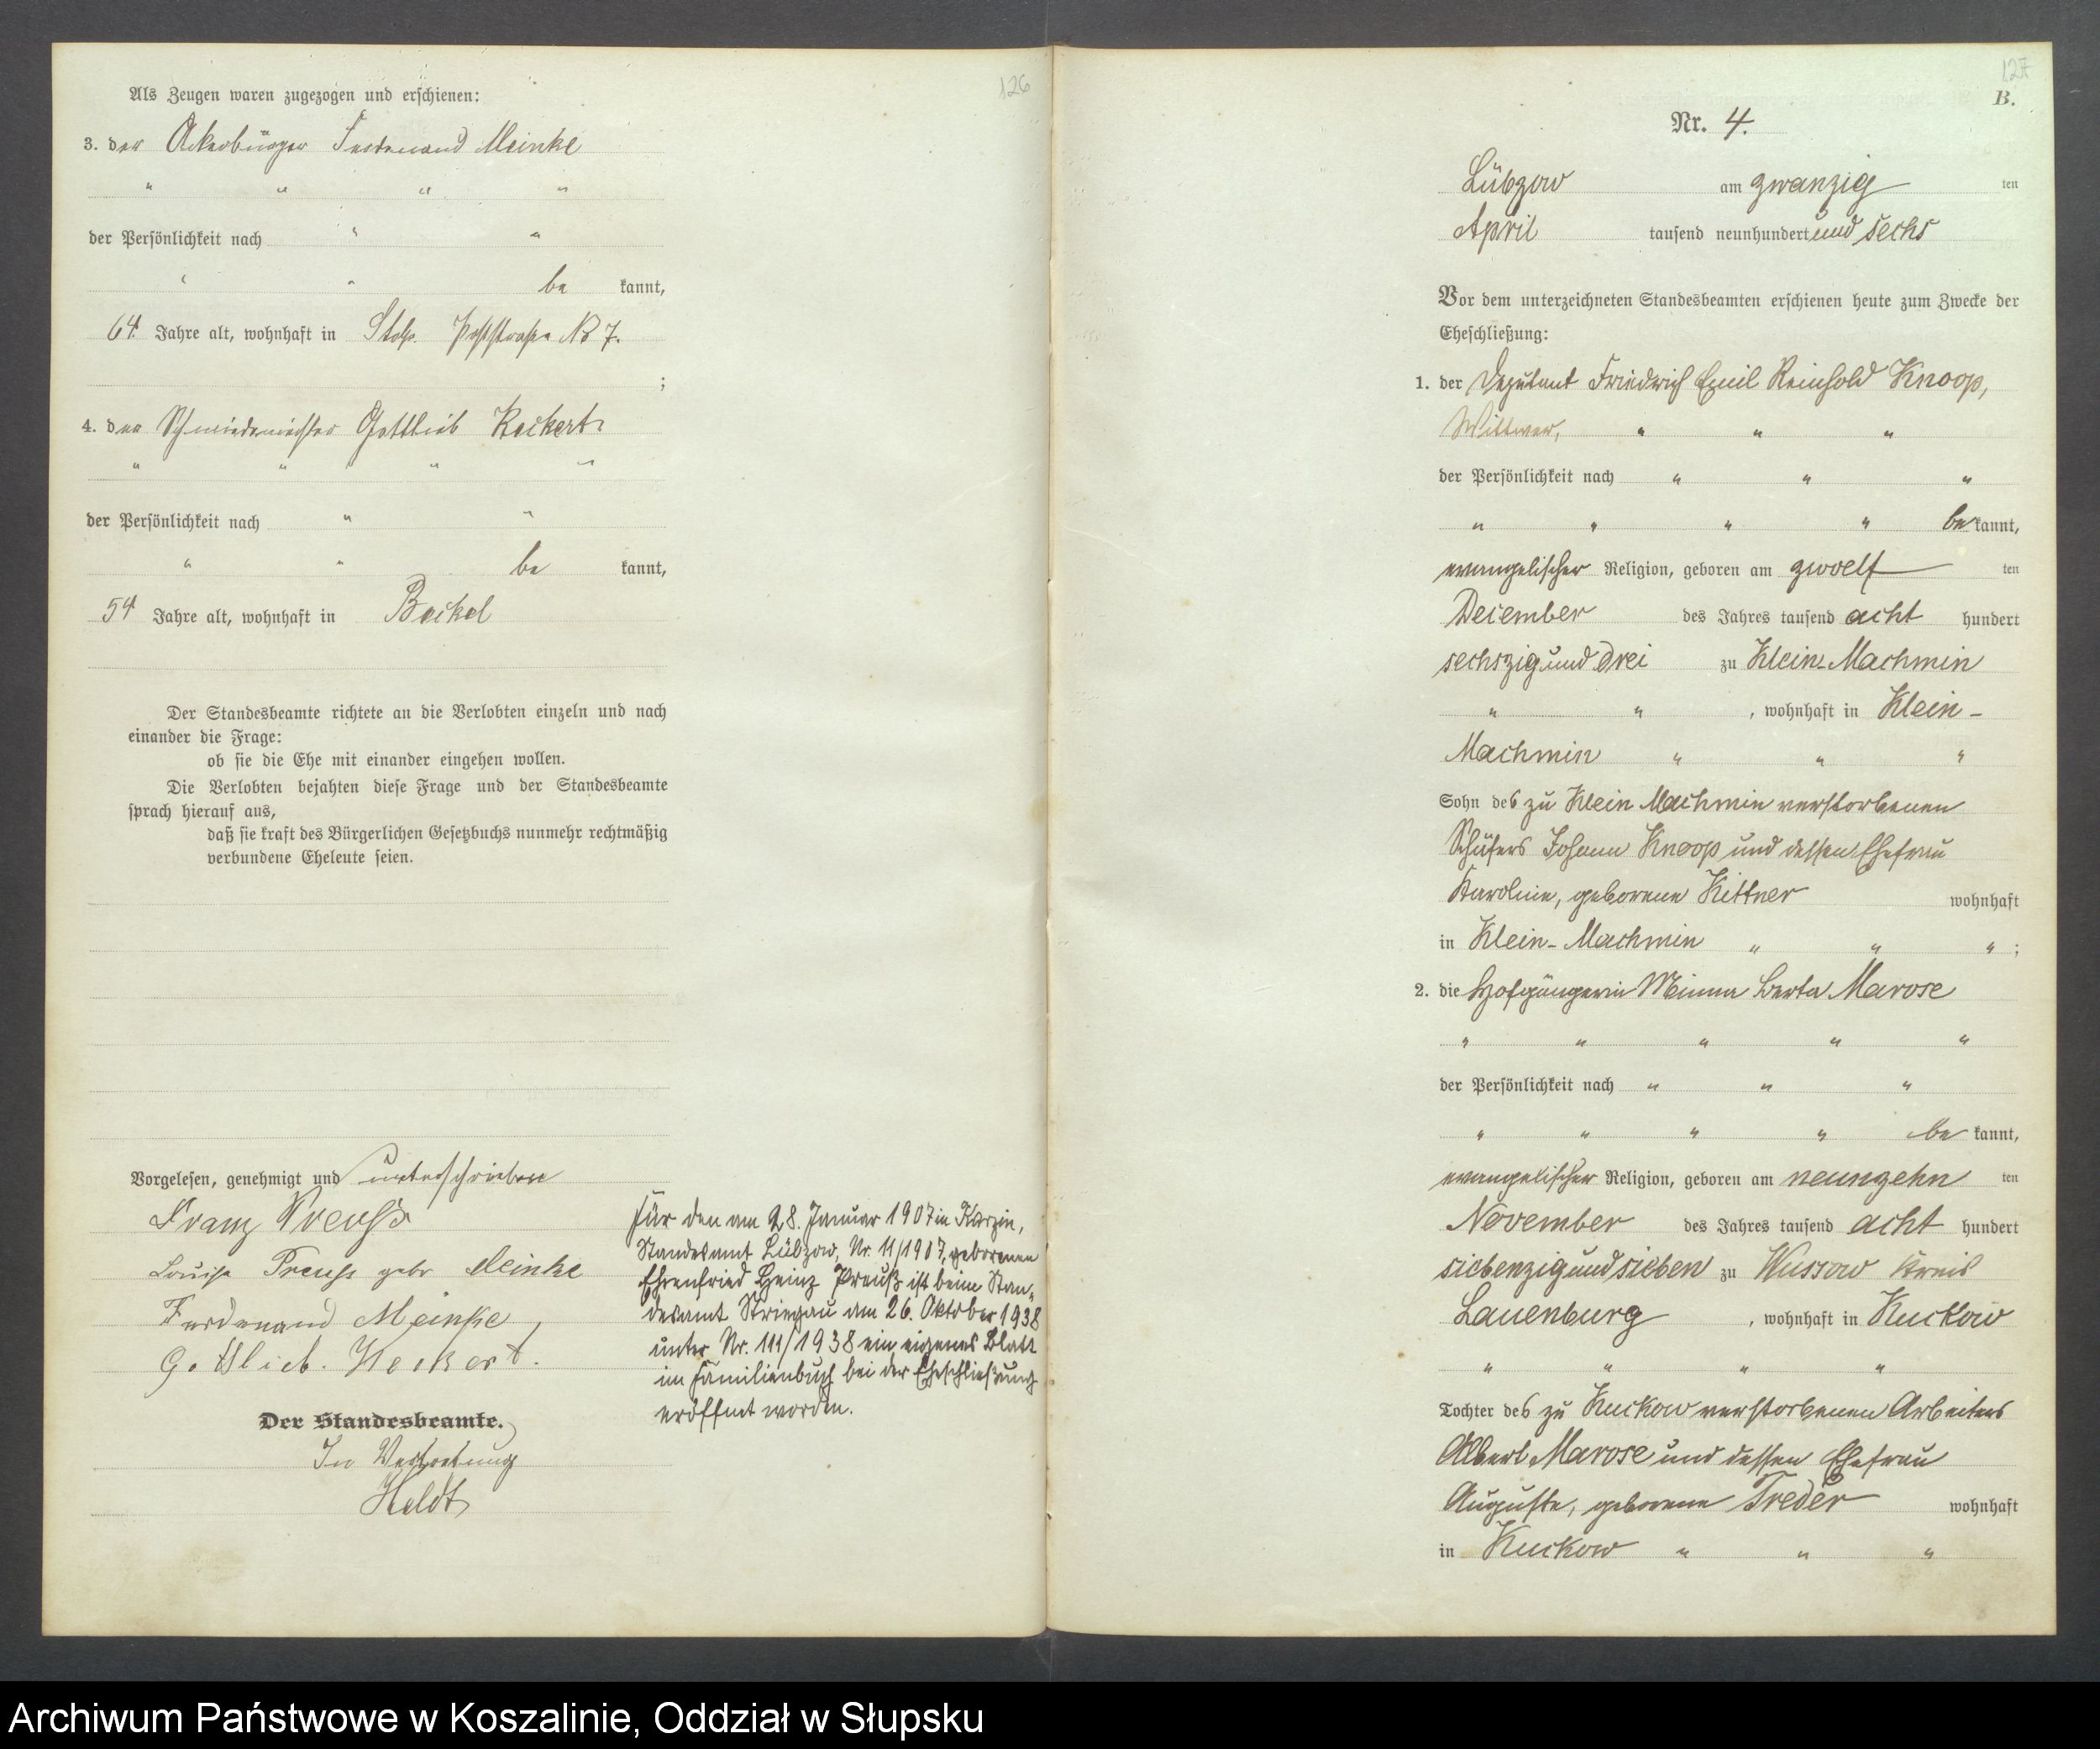 126
Als Zeugen waren zugezogen und erschienen:
3. der Ackerbürger Ferdinand Meinke
" " " "
der Persönlichkeit nach " "
" " be kannt,
64 Jahre alt, wohnhaft in Stolp. Poststraße No 7.
;
4. der Schmiedemeister Gottlieb Heckert
" " " " "
der Persönlichkeit nach " "
" " be kannt,
54 Jahre alt, wohnhaft in
Der Standesbeamte richtete an die Verlobten einzeln und nach
einander die Frage:
ob sie die Ehe mit einander eingehen wollen.
Die Verlobten bejahten diese Frage und der Standesbeamte
sprach hierauf aus,
daß sie kraft des Bürgerlichen Gesetzbuchs nunmehr rechtmäßig
verbundene Eheleute seien.
Vorgelesen, genehmigt und unterschrieben
Franz Preuß
Louise Preuß geb Meinke
Ferdinand Meinke
Gottlieb. Heckert.
Der Standesbeamte.
In Vertretung
Heldt
Für den am 28. Januar 1907 in Karzin,
Standesamt Lübzow, Nr. 11/1907, geborenen
Ehrenfried Heinz Preuß ist beim Stan„
desamt Striegau am 26. Oktober 1938
unter Nr. 111/1938 ein eigenes Blatt
im Familienbuch bei der Eheschließung
eröffnet worden.
127
B.
Nr. 4.
Lübzow am zwanzig ten
April tausend neunhundert und sechs
Vor dem unterzeichneten Standesbeamten erschienen heute zum Zwecke der
Eheschließung:
1. der Deputant Friedrich Emil Reinhold Knoop,
Wittwer, " " "
der Persönlichkeit nach " " "
" " " " be kannt,
evangelischer Religion, geboren am zwoelf ten
December des Jahres tausend acht hundert
sechszig und drei zu Klein-Machmin
" " , wohnhaft in Klein-
Machmin " " "
Sohn des zu Klein Machmin verstorbenen
Schäfers Johann Knoop und dessen Ehefrau
Karoline, geborene Kittner wohnhaft
in Klein-Machmin " " " ;
2. die Hofgängerin Minna Berta Marose
" " " " "
der Persönlichkeit nach " " "
" " " " be kannt,
evangelischer Religion, geboren am neunzehn ten
November des Jahres tausend acht hundert
siebenzig und sieben zu Wussow Kreis
Lauenburg , wohnhaft in Kuckow
" " " "
Tochter des zu Kuckow verstorbenen Arbeiters
Albert Marose und dessen Ehefrau
Auguste, geborene Treder wohnhaft
in Kuckow " " "
Archiwum Państwowe w Koszalinie, Oddział w Słupsku